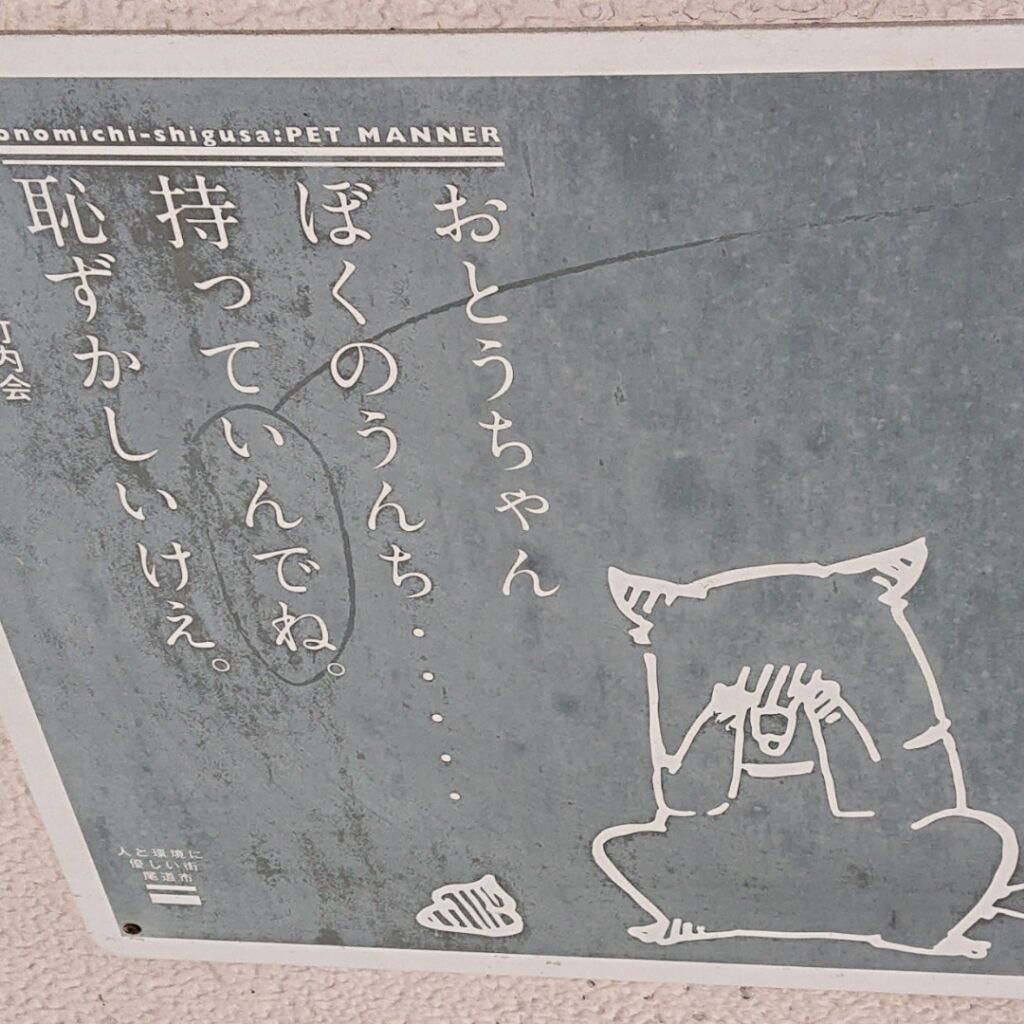 onomichi-shigusa:PET MANNER
おとうちゃん
ぼくのうんち・・・・・
持っていんでね。
恥ずかしいけぇ。
町内会
人と環境に
優しい街
尾道市